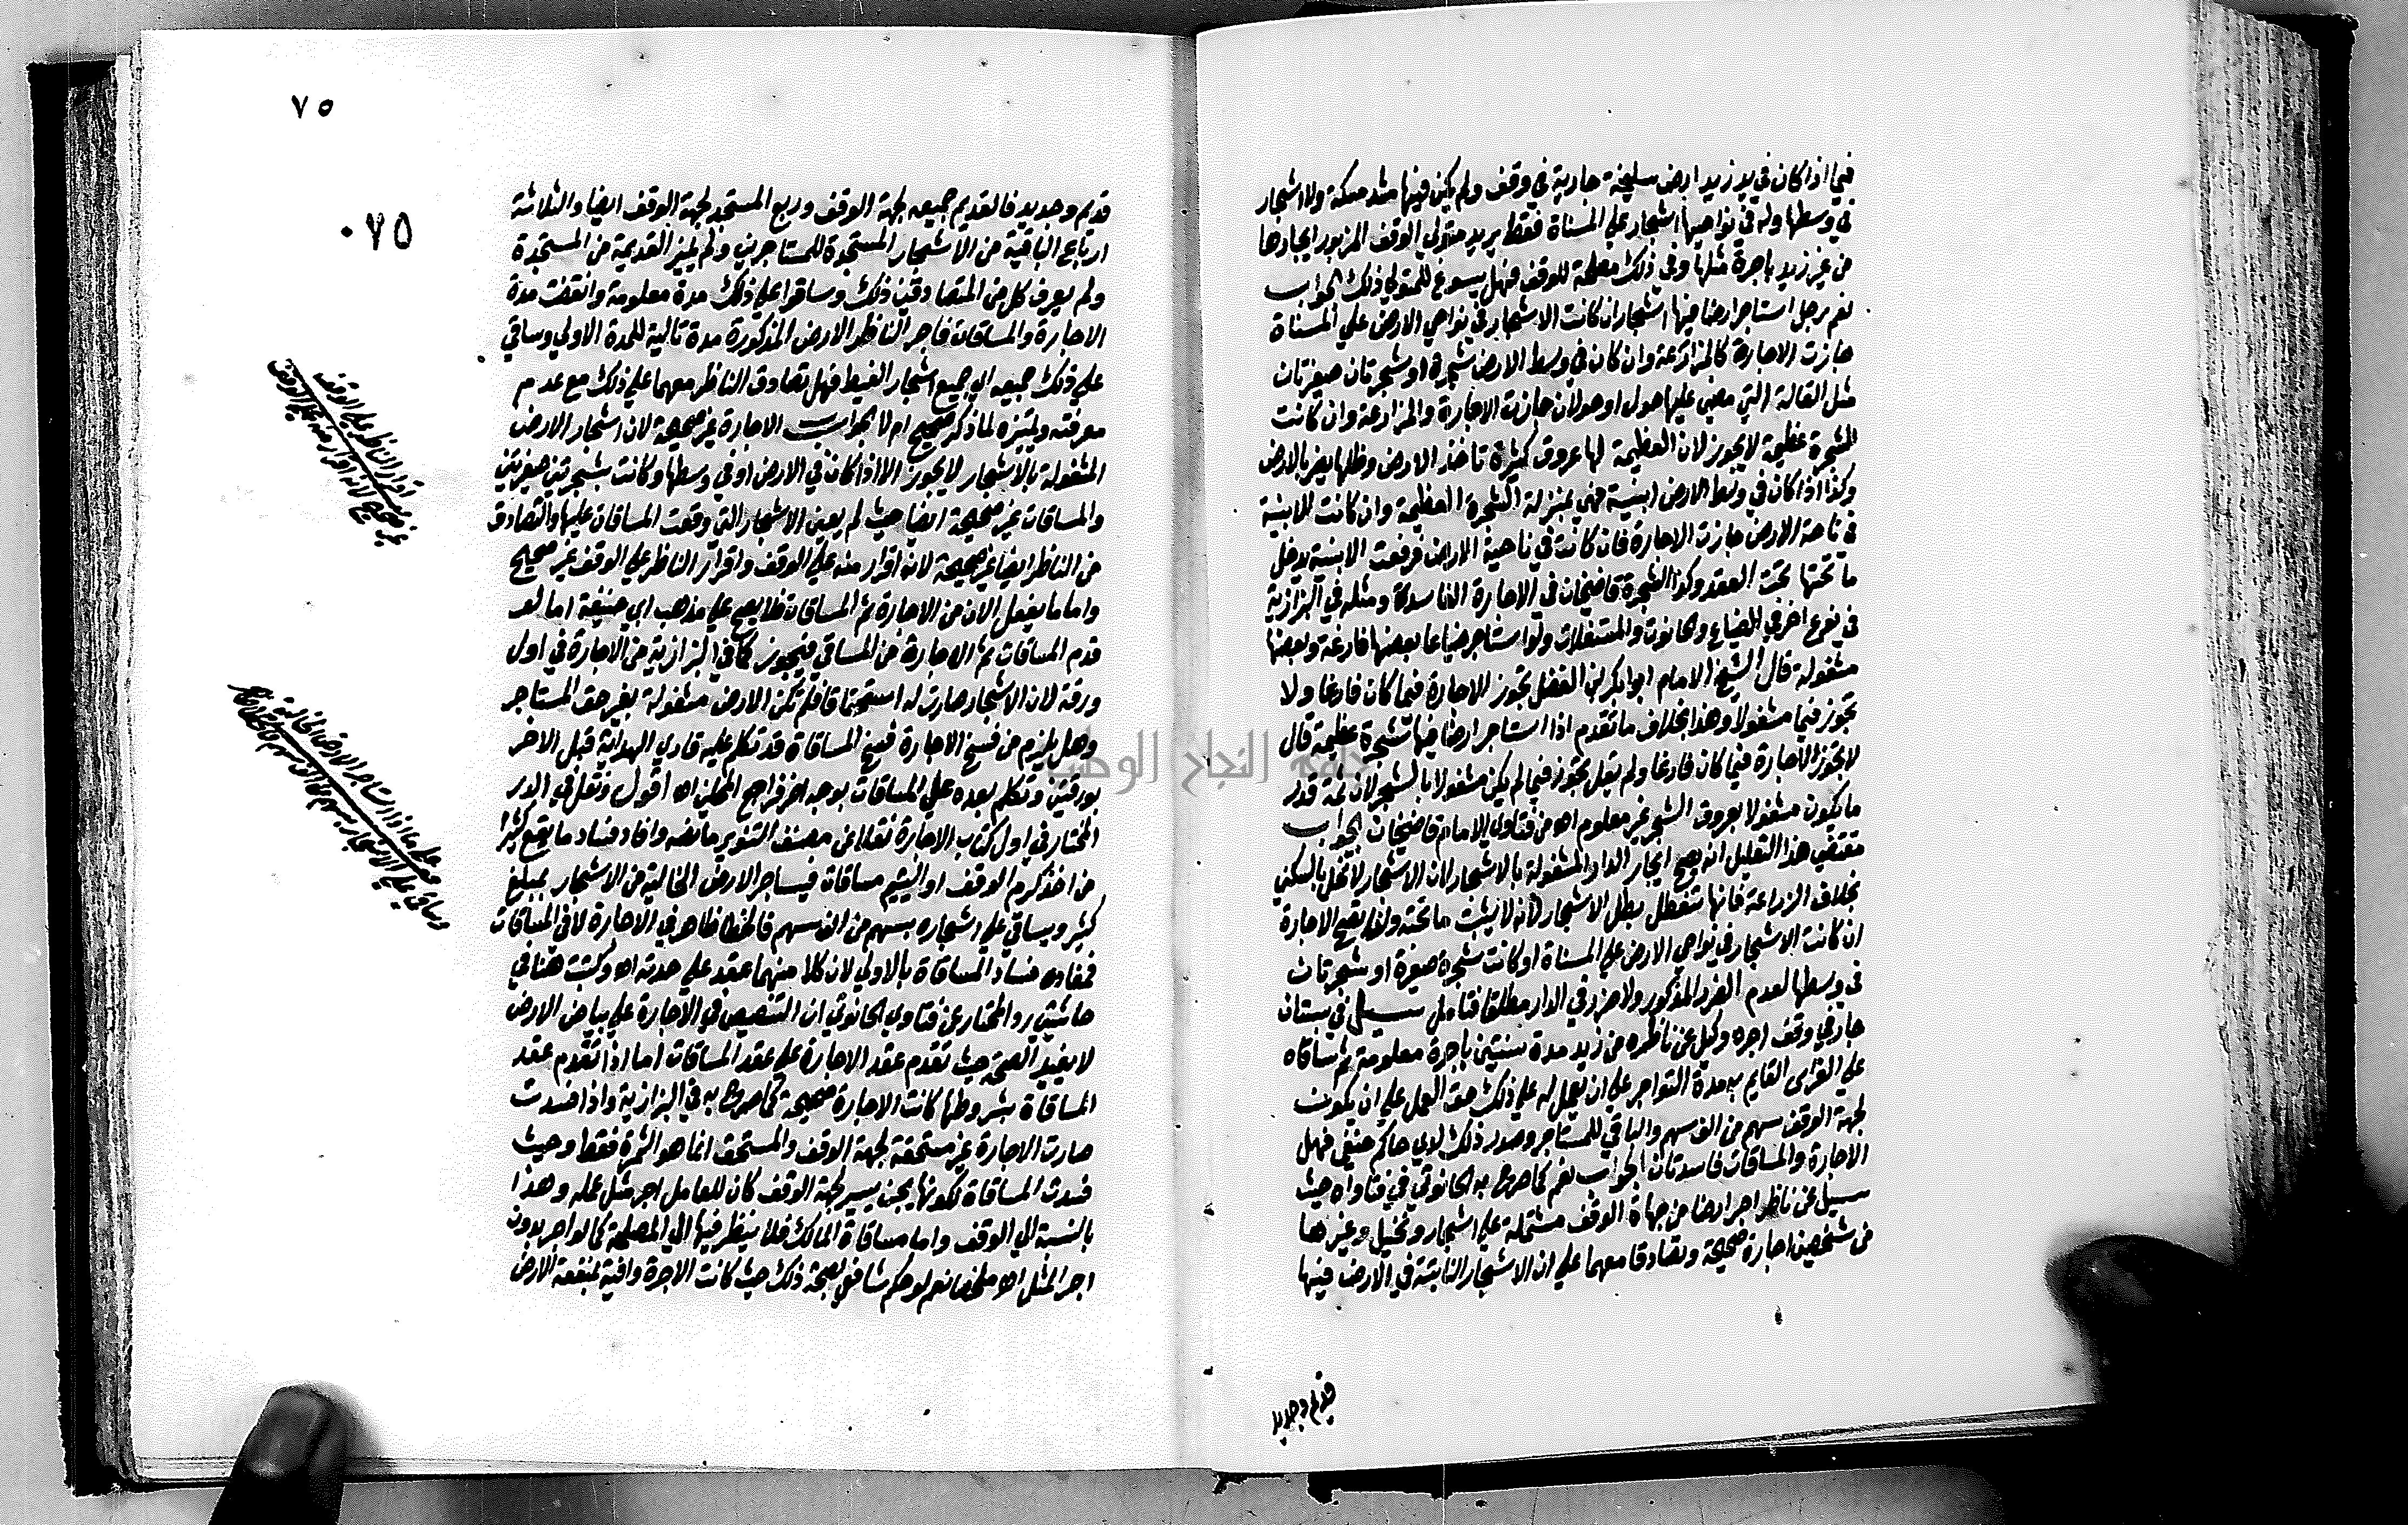 فيما اذا كان في يد زيد ارض سليخة جارية في وقف ولم يكن فيها مشد مسكة ولا اشجار
في وسطها وله في نواحيها اشجار علي المسناة فقط يريد متولي الوقف المزبور ايجارها
من غير زيد باجرة مثلها وفي ذلك مصلحة للوقف فهل يسوغ للمتولي ذلك الجواب
نعم رجل استاجر ارضا فيها اشجار ان كانت الاشجار في نواحي الارض علي المسناة
جازت الاجارة كالمزارعة وان كان في وسط الارض شجرة او شجرتان صغيرتان
مثل التالة التي مضي عليها حول او حولان جازت الاجارة والمزارعة وان كانت
الشجرة عظيمة لا يجوز لان العظيمة لها عروق كثيرة تاخذ الارض وظلها يضر بالارض
وكذا اذا كان في وسط الارض ابنية فهي بمنزلة الشجرة العظيمة وان كانت الابنية
في ناحية الارض جازت الاجارة فان كانت في ناحية الارض فرفعت الابنية يدخل
ما تحتها تحت العقد وكذا الشجرة قاضيخان في الاجارة الفاسدة ومثله في البزازية
في نوع اخر في الضياع والحانوت والمستغلات ولو استاجر ضياعا بعضها فارغة وبعضها
مشغولة قال الشيخ الامام ابو بكر بن الفضل تجوز الاجارة فيما كان فارغا ولا
تجوز فيما مشغولا وهذا بخلاف ما تقدم اذا استاجر ارضا فيها شجرة عظيمة قال
لا تجوز الاجارة فيما كان فارغا ولم يقل تجوز فيما لم يكن مشغولا بالشجر لان ثمة قدر
ما يكون مشغولا بعروق الشجر غير معلوم اه من فتاوي الامام قاضيخان الجواب
مقتضي هذا التعليل انه يصح ايجار الدار المشغولة بالاشجار لان الاشجار لا تخل بالسكني
بخلاف الزراعة فانها تتعطل بظل الاشجار لانه لا ينبت ما تحته ولذا تصح الاجارة
ان كانت الاشجار في نواحي الارض علي المسناة او كانت شجرة صغيرة او شجرتان
في وسطها لعدم الضرر المذكور ولا ضرر في الدار مطلقا فتامل سيل في بستان
جار في وقف اجره وكيل عن ناظره من زيد مدة سنتين باجرة معلومة ثم ساقاه
علي الغراس القايم به مدة التواجر علي ان يعمل له علي ذلك حق العمل علي ان يكون
لجهة الوقف سهم من الف سهم والباقي للمستاجر وصدر ذلك لدي حاكم حنفي فهل
الاجارة والمساقات فاسدتان الجواب نعم كما صرح به الحانوتي في فتاواه حيث
سييل عن ناظر اجر ارضا من جهاة الوقف مشتملة علي اشجار ونخيل وغيرها
من شخصين اجارة صحيحة وتصادقا معهما علي ان الاشجار النابتة في الارض فيها
قديم وجديد
٧٥
٠٧٥
قديم وجديد فالقديم جميعه لجهة الوقف وربع المستجد لجهة الوقف ايضا والثلاثة
ارباع الباقية من الاشجار المستجدة للمستاجرين ولم يميز القديمة من المستجدة
ولم يعرف كل من المتصادقين ذلك وساقوا علي ذلك مدة معلومة وانقضت مدة
الاجارة والمساقات فاجر الناظر الارض المذكورة مدة تالية للمدة الاولي وساقي
علي ذلك جميعه اي جميع اشجار الغيط فهل تصادق الناظر معهما علي ذلك مع عدم
معرفته وتميزه لما ذكر صحيح ام لا الجواب الاجارة غير صحيحة لان اشجار الارض
المشغولة بالاشجار لا يجوز الا اذا كان في الارض او في وسطها وكانت شجرتين صغيرتين
والمساقات غير صحيحة ايضا حيث لم يعين الاشجار التي وقعت المساقات عليها والتصادق
من الناظر ايضا غير صحيحة لانه اقرار منه علي الوقف واقرار الناظر علي الوقف غير صحيح
واما ما يفعل الان من الاجارة ثم المساقات فلا يصح علي مذهب ابي حنيفة اما لو
قدم المساقات ثم الاجارة من المساقي فيجوز كما في البزازية من الاجارة في اول
ورقة لان الاشجار صارت له استحقاقا فلم تكن الارض مشغولة بغير حق المستاجر
وهل يلزم من فسخ الاجارة فسخ المساقاة قد تكلم عليه قاري الهداية قبل الاخر
بورقتين وتكلم بعده علي المساقات بوجه اخر فراجع المحلين اه اقول ونقل في الدر
المختار في اول كتاب الاجارة نقلا عن مصنف التنوير ما نصه وافاد فساد ما يقع كثيرا
من اخذ كرم الوقف او اليتيم مساقات فيستاجر الارض الخالية من الاشجار بمبلغ
كثير ويساقي علي اشجاره بسهم من الف سهم فالحظ ظاهر في الاجارة لا في المساقات
فمفاده فساد المساقاة بالاولي لان كلا منهما عقد علي حدته اه وكتبت هنا في
حاشيتي رد المحتار عن فتاوي الحانوتي ان التنصيص في الاجارة علي بياض الارض
لا يفيد الصحة حيث تقدم عقد الاجارة علي عقد المساقات اما اذا تقدم عقد
المساقاة بشروطها كانت الاجارة صحيحة كما صرح به في البزازية واذا فسدت
صارت الاجارة غير مستحقة لجهة الوقف والمستحق انما هو الثمرة فقط وحيث
فسدت المساقاة لكونها بجزء يسير لجهة الوقف كان للعامل اجر مثل عمله وهذا
بالنسبة الي الوقف واما مساقاة المالك فلا ينظر فيها الي المصلحة كما لو اجر بدون
اجر المثل اه ملخصا نعم لو حكم شافعي بصحة ذلك حيث كانت الاجرة وافية بمنفعة الارض
اقرار الناظر علي الوقف
غير صحيح لانه اقرار منه علي الوقف